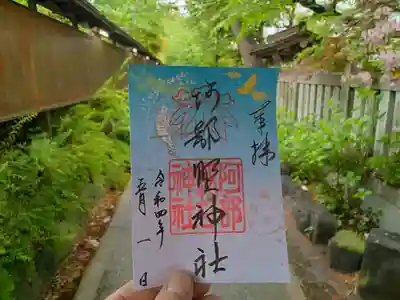 奉拝
阿部野神社
阿部
野
神社
令和四年
五月一日